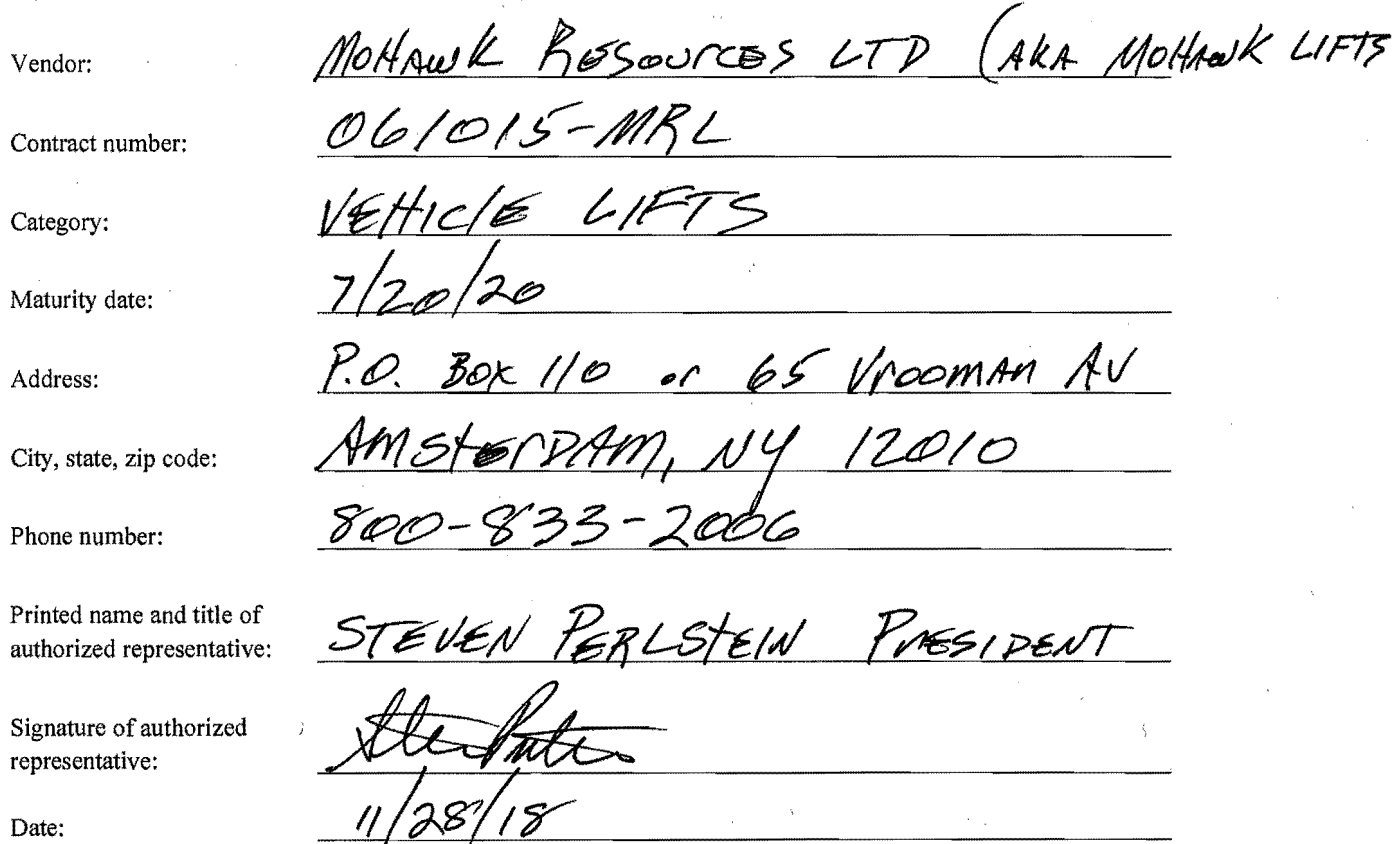 Vendor: MOHAWK RESOURCES LTD (AKA MOHAWK LIFTS
Contract number: 061015-MRL
Category: VEHICLE LIFTS
Maturity date: 7/20/20
Address: P.O. BOX 110 or 65 VROOMAN AV
City, state, zip code: AMSTERDAM, NY 12010
Phone number: 800-833-2006
Printed name and title of
authorized representative: STEVEN PERLSTEIN PRESIDENT
Signature of authorized
representative:
Date: 11/28/18